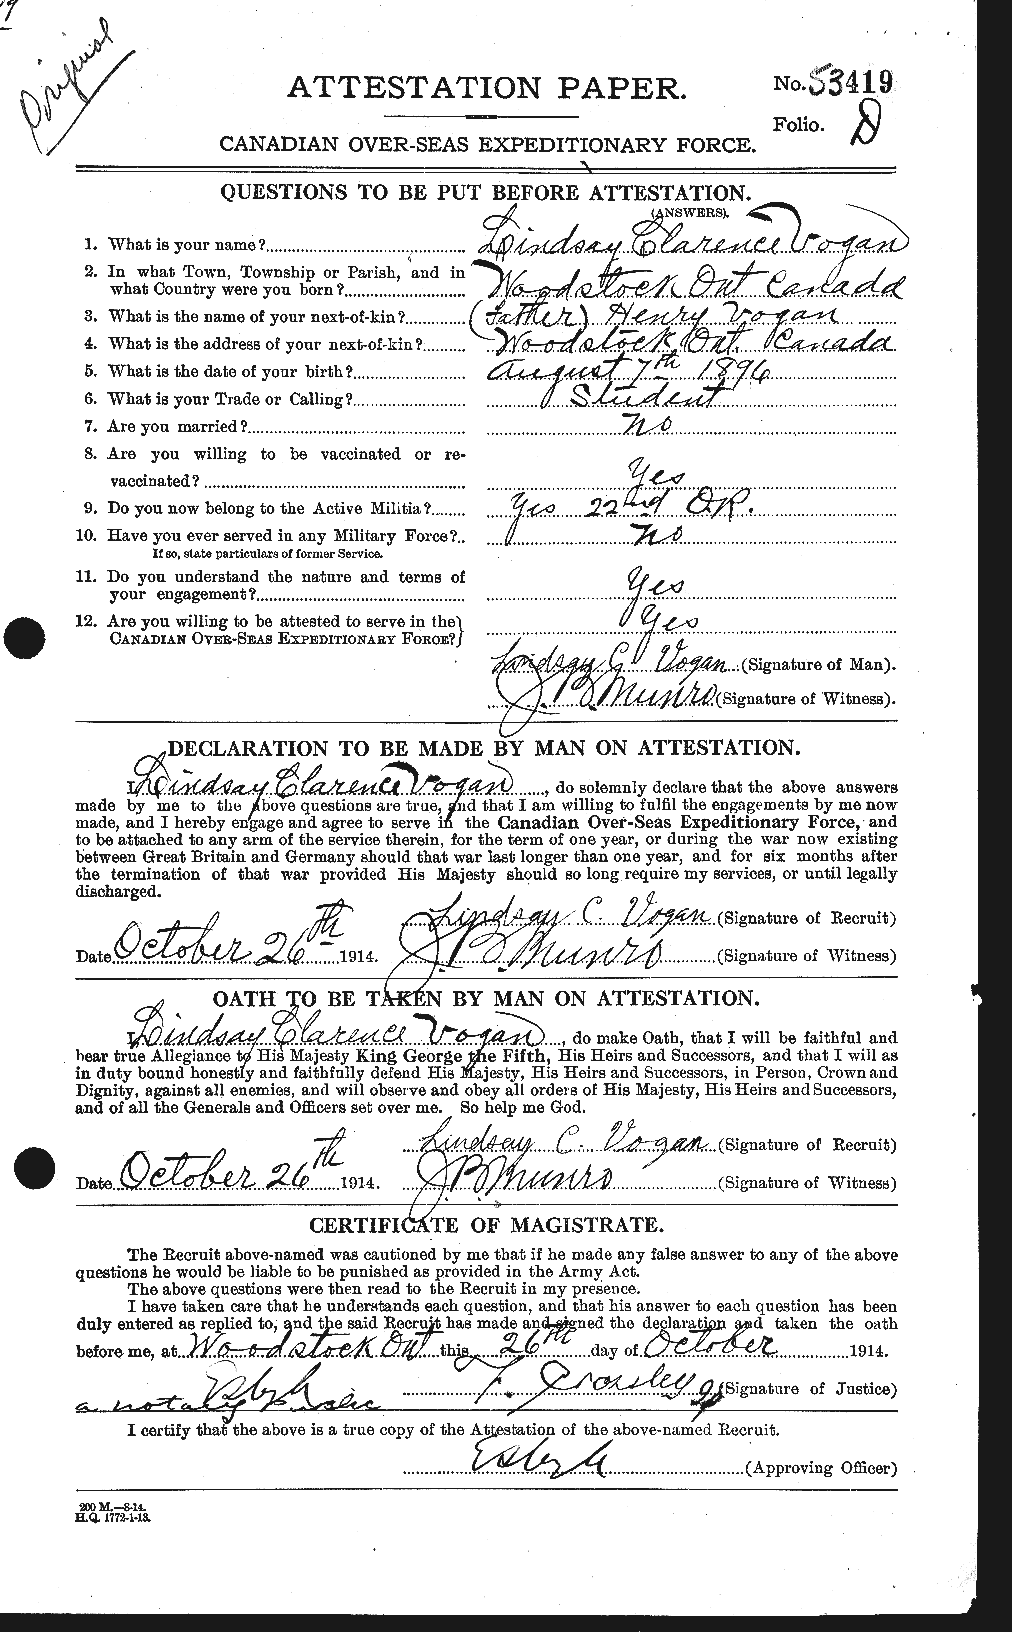 Original
ATTESTATION PAPER.
No. 53419
Folio. D
CANADIAN OVER-SEAS EXPEDITIONARY FORCE.
QUESTIONS TO BE PUT BEFORE ATTESTATION.
(ANSWERS).
1. What is your name? Lindsay Clarence Vogan
2. In what Town, Township or Parish, and in
what Country were you born? Woodstock Ont Canada
3. What is the name of your next-of-kin? (father) Henry Vogan
4. What is the address of your next-of-kin? Woodstock, Ont. Canada
5. What is the date of your birth? August 7th 1896
6. What is your Trade or Calling? Student
7. Are you married? No
8. Are you willing to be vaccinated or re-
vaccinated? Yes
9. Do you now belong to the Active Militia? Yes 22nd O.R.
10. Have you ever served in any Military Force? No
If so, state particulars of former Service.
11. Do you understand the nature and terms of
your engagement? Yes
12. Are you willing to be attested to serve in the
CANADIAN OVER-SEAS EXPEDITIONARY FORCE? Yes
Lindsay C. Vogan (Signature of Man).
J. B. Munro (Signature of Witness).
DECLARATION TO BE MADE BY MAN ON ATTESTATION.
I, Lindsay Clarence Vogan, do solemnly declare that the above answers
made by me to the above questions are true, and that I am willing to fulfil the engagements by me now
made, and I hereby engage and agree to serve in the Canadian Over-Seas Expeditionary Force, and
to be attached to any arm of the service therein, for the term of one year, or during the war now existing
between Great Britain and Germany should that war last longer than one year, and for six months after
the termination of that war provided His Majesty should so long require my services, or until legally
discharged.
Lindsay C. Vogan (Signature of Recruit)
Date October 26th 1914. J. B. Munro (Signature of Witness)
OATH TO BE TAKEN BY MAN ON ATTESTATION.
I, Lindsay Clarence Vogan, do make Oath, that I will be faithful and
bear true Allegiance to His Majesty King George the Fifth, His Heirs and Successors, and that I will as
in duty bound honestly and faithfully defend His Majesty, His Heirs and Successors, in Person, Crown and
Dignity, against all enemies, and will observe and obey all orders of His Majesty, His Heirs and Successors,
and of all the Generals and Officers set over me. So help me God.
Lindsay C. Vogan (Signature of Recruit)
Date October 26th 1914. J. B. Munro (Signature of Witness)
CERTIFICATE OF MAGISTRATE.
The Recruit above-named was cautioned by me that if he made any false answer to any of the above
questions he would be liable to be punished as provided in the Army Act.
The above questions were then read to the Recruit in my presence.
I have taken care that he understands each question, and that his answer to each question has been
duly entered as replied to, and the said Recruit has made and signed the declaration and taken the oath
before me, at Woodstock Ont this 26th day of October 1914.
a notary public (Signature of Justice)
I certify that the above is a true copy of the Attestation of the above-named Recruit.
(Approving Officer)
200 M.—8-14.
H.Q. 1772-1-13.